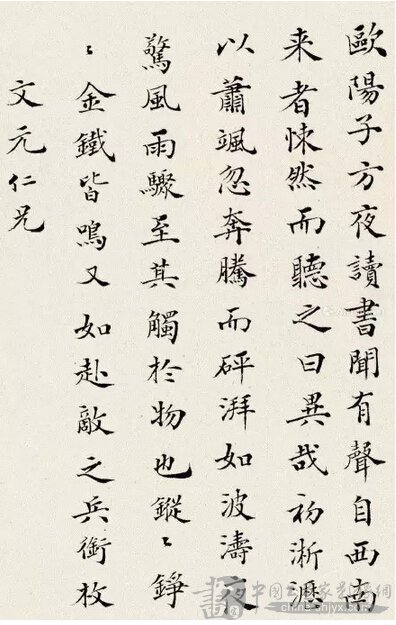 歐陽子方夜讀書聞有聲自西南
来者悚然而聽之曰異哉初淅瀝
以蕭颯忽奔騰而砰湃如波濤夜
驚風雨驟至其觸於物也鏦〻錚
〻金鐵皆鳴又如赴敵之兵銜枚
文元仁兄